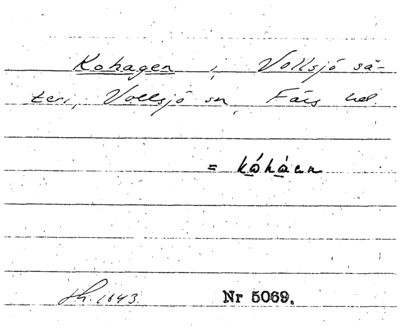 Kohagen i Vollsjö sä-
teri, Vollsjö sn, Färs hd
= kóháen
1843.
Nr 5069.